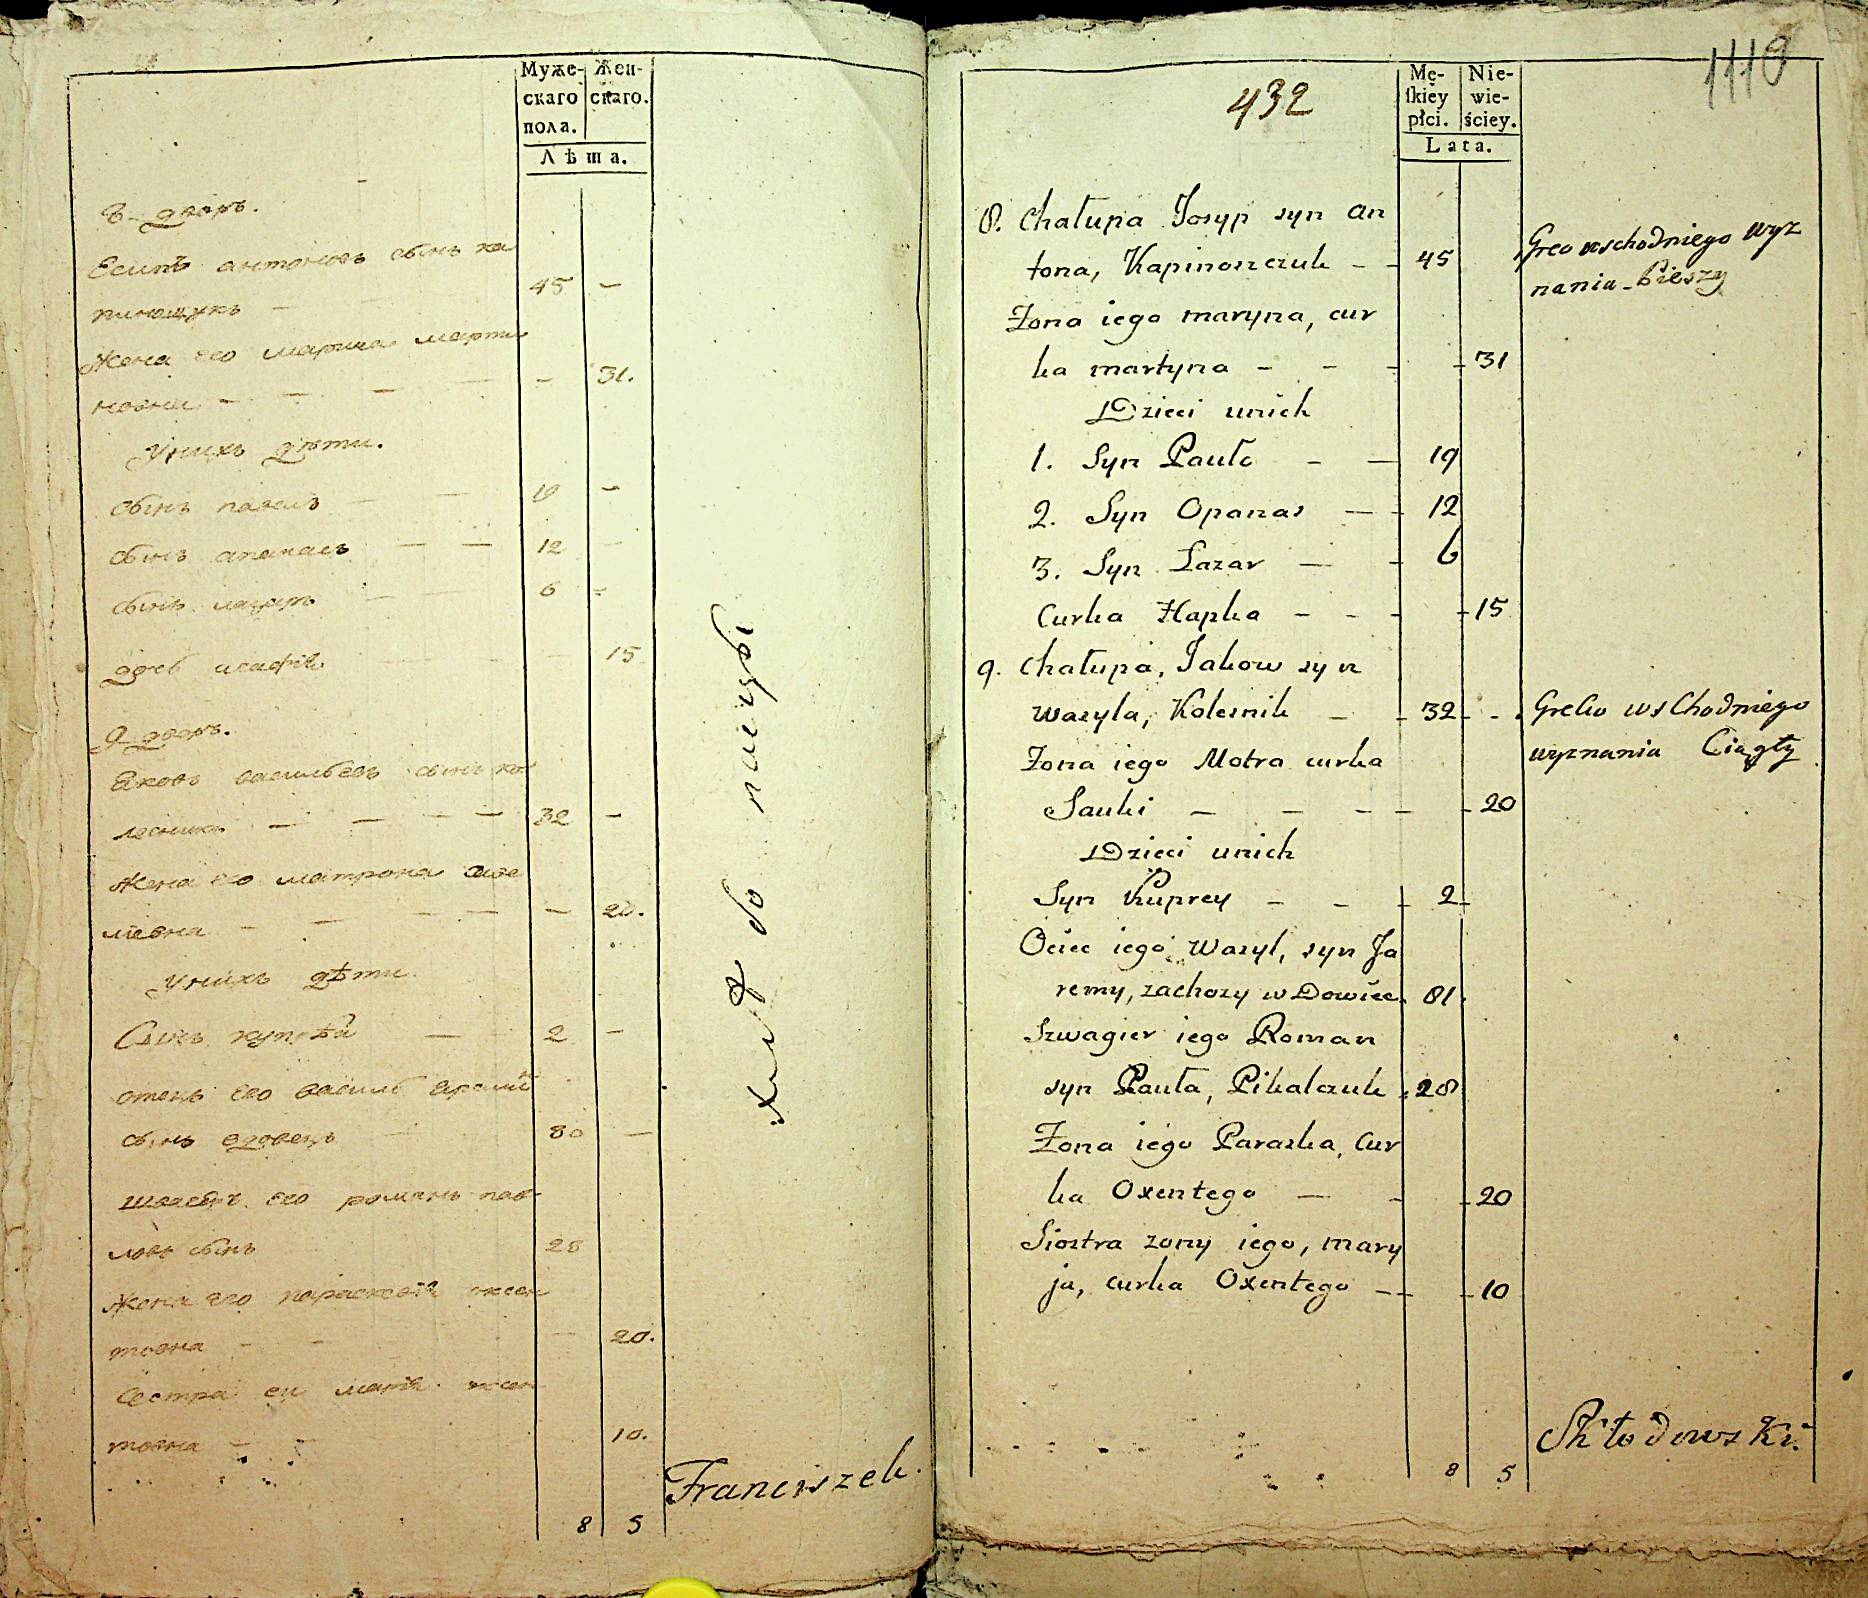 Муже-
скаго
пола.
Жен-
скаго.
Лѣта.
8 дворъ.
Есипъ антоновъ сынъ ка
пинощукъ — 45 —
Жена его марина марти
новна — — — — 31.
Унихъ дѣти.
сынъ павелъ — — 19 —
сынъ апанасъ — — 12 —
сынъ лазаръ — — 6 —
дочь агафія — — — 15
9 дворъ.
Яковъ васильевъ сынъ ко
лесникъ — — — — 32 —
Жена его матрона саве
лѣевна — — — — — 20.
Унихъ дѣти
Сынъ купрѣй — 2 —
отецъ его василь ярэмѣ
сынъ вдовецъ — 80 —
швагеръ его романъ пав
ловъ сынъ 28
Жена его параскевія оксен
товна — — — 20.
Сестра еи марія оксен
товна — — 10.
8 5
Franciszek
432
1119
Mę-
skiey
płci.
Nie-
wie-
ściey.
Lata.
8. Chałupa Josyp syn an
tona, Kapinoszczuk — – 45
Greo wschodniego wyz
nania – Pieszy
Zona iego maryna, cur
ka martyna – – – – 31
Dzieci unich
1. Syn Pauło – — 19
2. Syn Opanas — – 12
3. Syn Łazar — – 6
Curka Hapka – – – – 15
9. Chałupa, Jakow syn
wasyla, Kolesnik – – 32 – -
Greko wschodniego
wyznania Ciągły
Zona iego Motra curka
Sauki – – – – – 20
Dzieci unich
Syn Kuprey – – – 2 –
Ociec iego Wasyl, syn Ja
remy, zachozy w Dowiec. 81.
Szwagier iego Roman
syn Pauła, Pikalczuk 28
Zona iego Paraska, Cur
ka Oxentego — – – 20
Siostra zony iego, mary
ja, curka Oxentego – – – 10
Skłodowski.
8 5